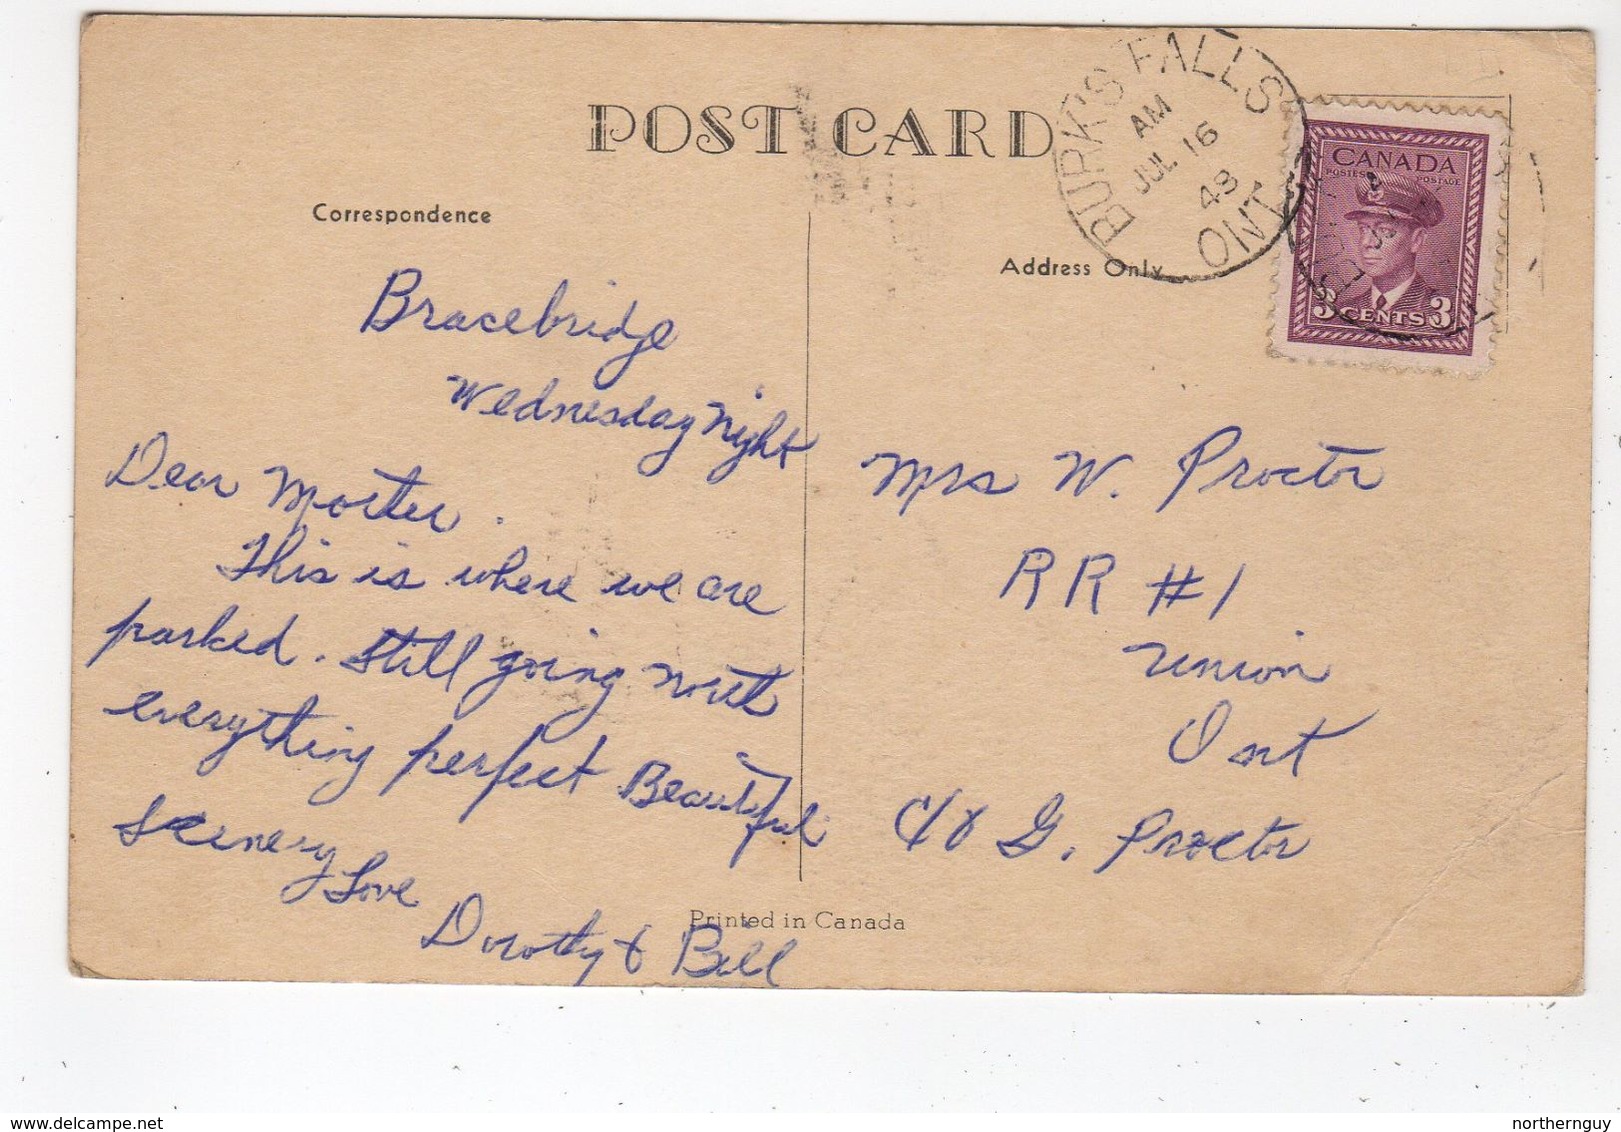 POST CARD
Correspondence
Address Only
BURK'S FALLS
AM
JUL 16
48
ONT
CANADA
POSTES POSTAGE
3 CENTS 3
Bracebridge
Wednesday Night
Dear Mother.
This is where we are
parked. Still going North
everything perfect Beautiful
Scenery Love
Dorothy & Bill
Mrs W. Proctor
RR #1
Union
Ont
c/o G. Proctor
Printed in Canada
northernguy